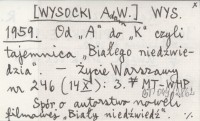 [WYSOCKI A.W.] WYS.
Adam
1959. Od „A" do „K" czyli
tajemnica „Białego niedźwie-
dzia". — Życie Warszawy
nr 246 (14 X): 3. # MT-WHP
Spór o autorstwo noweli
filmowej „Biały niedźwiedź".